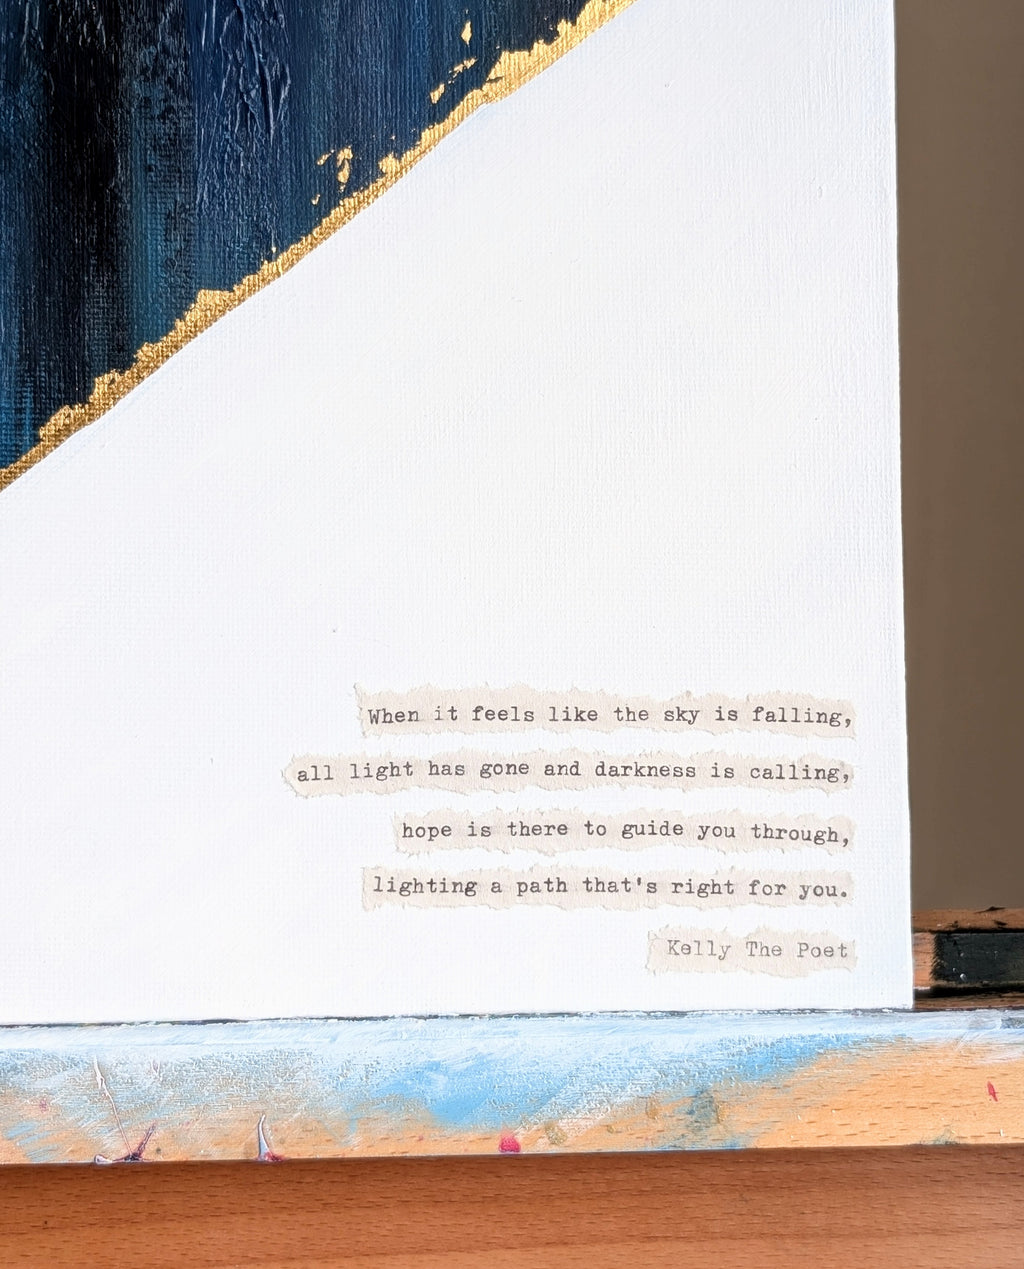 When it feels like the sky is falling,
all light has gone and darkness is calling,
hope is there to guide you through,
lighting a path that's right for you.
Kelly The Poet